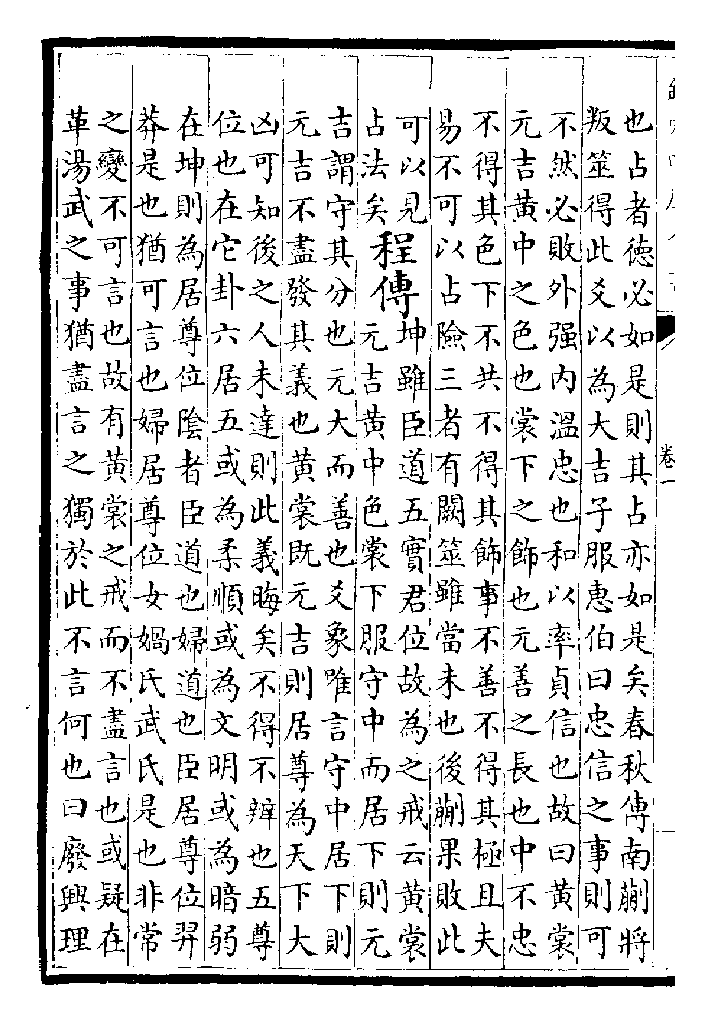 卷一
也占者德必如是則其占亦如是矣春秋傳南蒯將
叛筮得此爻以為大吉子服惠伯曰忠信之事則可
不然必敗外强内溫忠也和以率貞信也故曰黄裳
元吉黄中之色也裳下之飾也元善之長也中不忠
不得其色下不共不得其飾事不善不得其極且夫
易不可以占險三者有闕筮雖當未也後蒯果敗此
可以見
占法矣
程傳
坤雖臣道五實君位故為之戒云黄裳
元吉黄中色裳下服守中而居下則元
吉謂守其分也元大而善也爻象唯言守中居下則
元吉不盡發其義也黄裳既元吉則居尊為天下大
凶可知後之人未達則此義晦矣不得不辨也五尊
位也在它卦六居五或為柔順或為文明或為暗弱
在坤則為居尊位陰者臣道也婦道也臣居尊位羿
莽是也猶可言也婦居尊位女媧氏武氏是也非常
之變不可言也故有黄裳之戒而不盡言也或疑在
革湯武之事猶盡言之獨於此不言何也曰廢興理